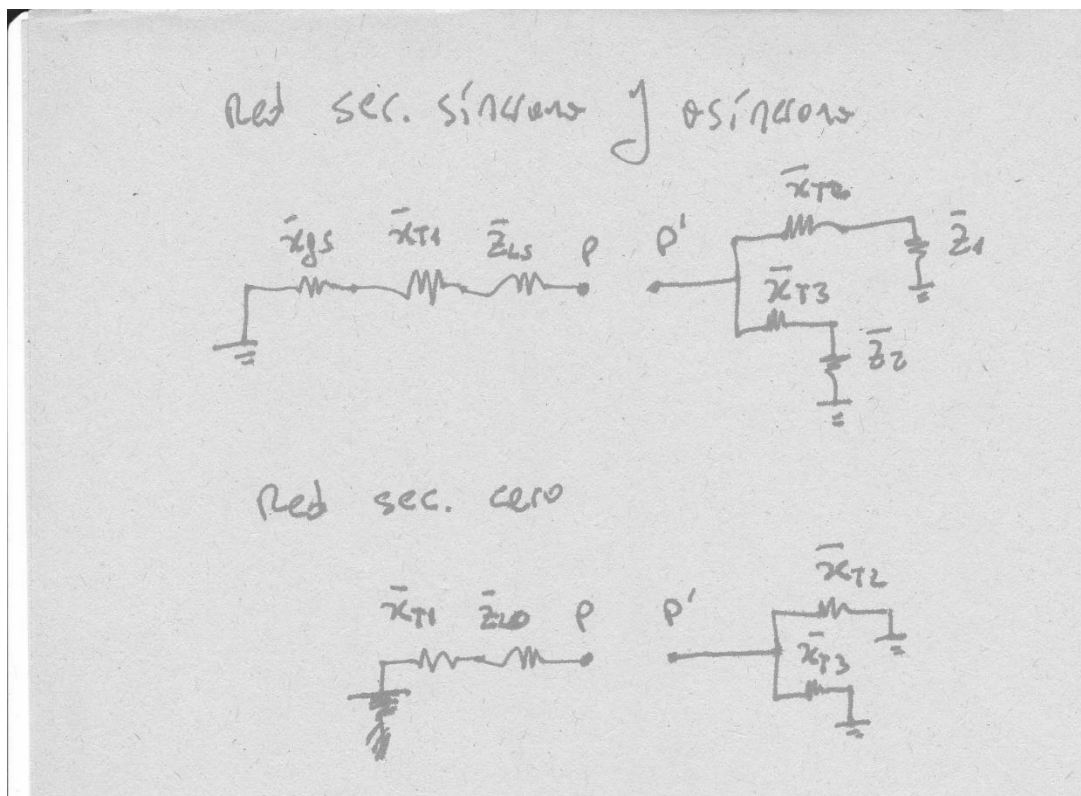 Red sec. síncrona y asíncrona
x̄gs x̄T1 Z̄LS P P' x̄T2 Z̄1
x̄T3 Z̄2
Red sec. cero
x̄T1 Z̄L0 P P' x̄T2
x̄T3